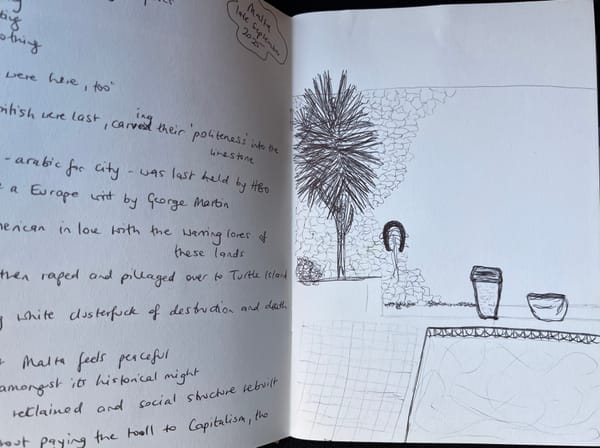 ing
nothing
were here, too"
British were last, carving their 'politeness' into the
limestone
- arabic for city - was last held by HBO
a Europe writ by George Martin
American in love with the warring lores of
these lands
then raped and pillaged over to Turtle Island
white clusterfuck of destruction and death
Malta feels peaceful
amongst its historical might
reclaimed and social structure rebuilt
paying the toll to Capitalism, the
Malta
late September
2025